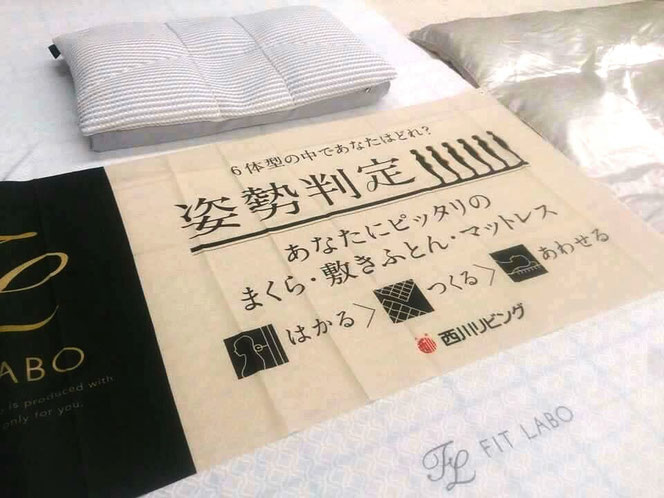 6体型の中であなたはどれ?
姿勢判定
あなたにピッタリの
まくら・敷きふとん・マットレス
はかる > つくる > あわせる
西川リビング
FL
ABO
is produced with
only for you.
FL FIT LABO